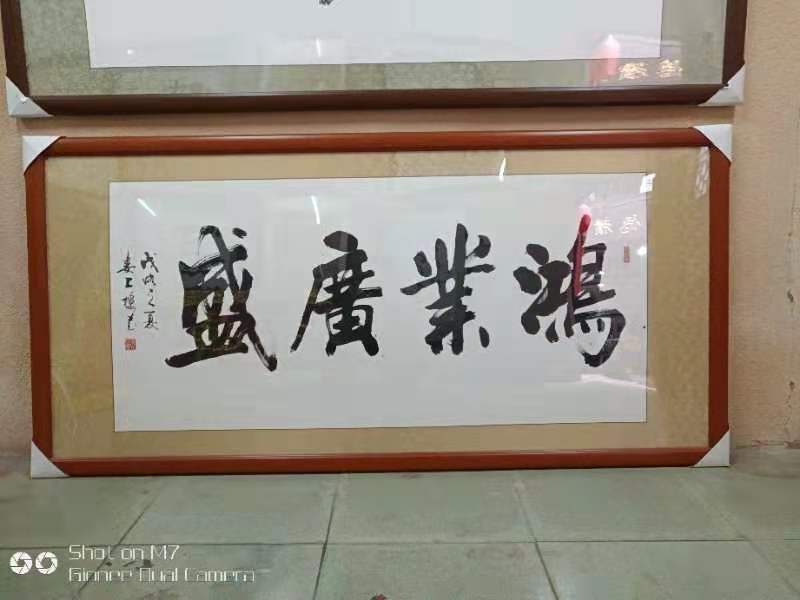 鴻業廣盛
戊戌之夏
Shot on M7
Gionee Dual Camera